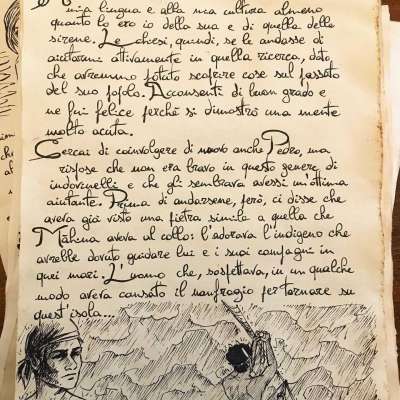 mia lingua e alla mia cultura almeno
quanto lo ero io della sua e di quella delle
sirene. Le chiesi, quindi, se le andasse di
aiutarmi attivamente in quella ricerca, dato
che avremmo potuto scoprire cose sul passato
del suo popolo. Acconsentì di buon grado e
ne fui felice perché si dimostrò una mente
molto acuta.
Cercai di coinvolgere di nuovo anche Pedro, ma
rispose che non era bravo in questo genere di
indovinelli e che gli sembrava avessi un'ottima
aiutante. Prima di andarsene, però, ci disse che
aveva già visto una pietra simile a quella che
Māhina aveva al collo: l'adorava l'indigeno che
avrebbe dovuto guidare lui e i suoi compagni in
quei mari. L'uomo che, sospettava, in un qualche
modo aveva causato il naufragio per tornare su
quest'isola...